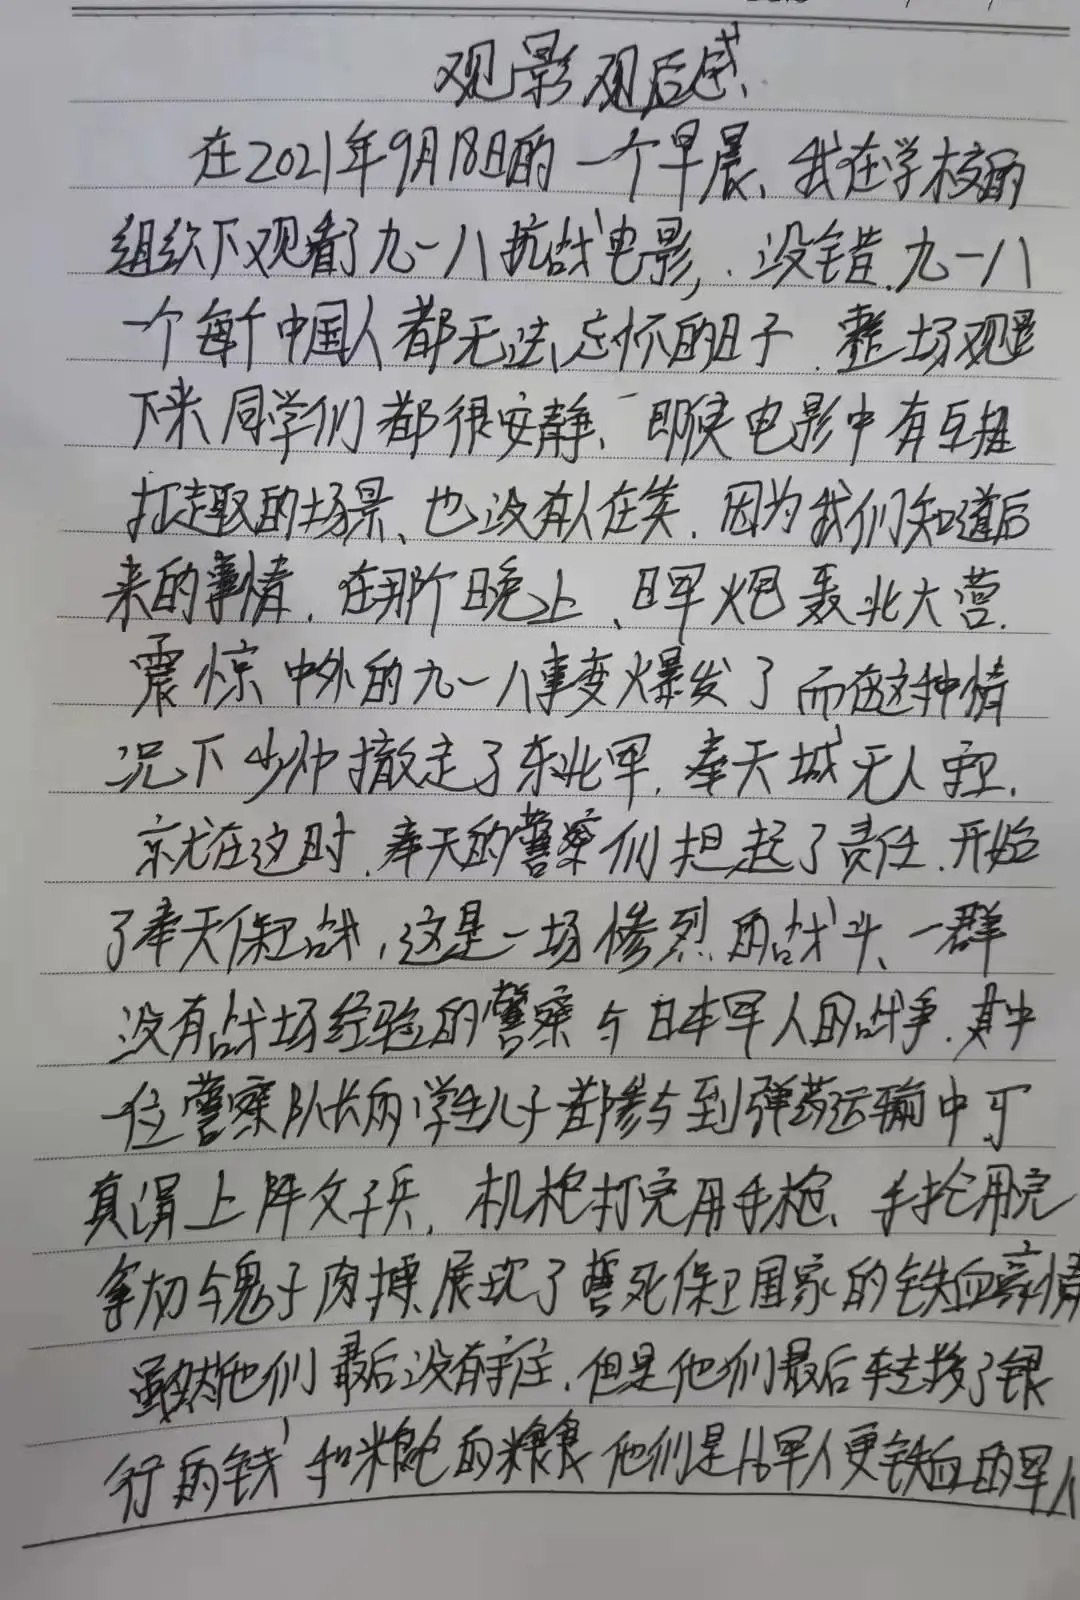 观影观后感
在2021年9月18日的一个早晨、我在学校的
组织下观看了九一八抗战电影，没错.九一八
一个每个中国人都无法忘怀的日子.整场观影
下来同学们都很安静、即使电影中有互相
打趣的场景、也没有人在笑.因为我们知道后
来的事情.在那个晚上、日军炮轰北大营.
震惊中外的九一八事变爆发了而在这种情
况下少帅撤走了东北军.奉天城无人守卫.
就在这时.奉天的警察们担起了责任.开始
了奉天保卫战，这是一场惨烈的战斗、一群
没有战场经验的警察与日本军人的战争.其中
一位警察队长的学生儿子都参与到弹药运输中可
真谓上阵父子兵.机枪打完用手枪、手抡用完
拿刀与鬼子肉搏.展现了誓死保卫国家的铁血豪情
虽然他们最后没有守住.但是他们最后转移了银
行的钱和粮仓的粮食他们是比军人更铁血的军人